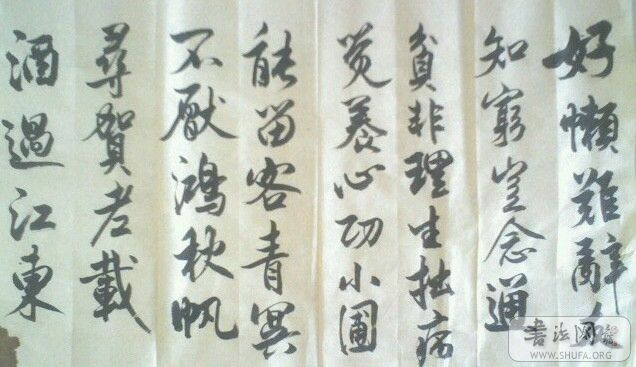 好懶難辭友
知窮豈念通
貧非理生拙病
覺養心功小圃
能留客青冥
不厭鴻秋帆
尋賀老載
酒過江東
書法网
WWW.SHUFA.ORG